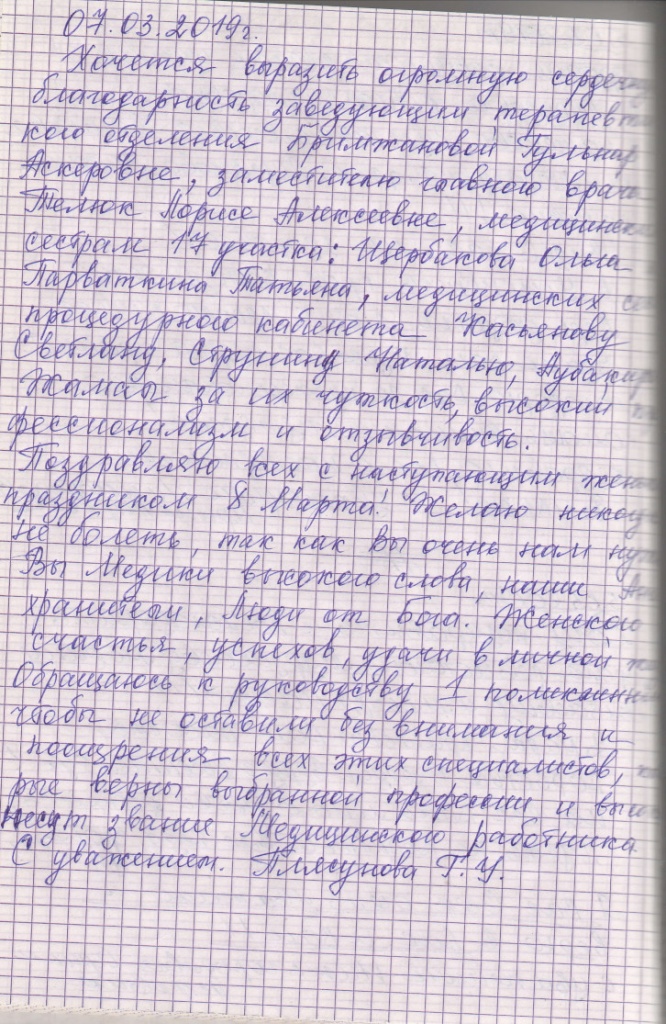 07.03.2019г.
Хочется выразить огромную сердечн
благодарность заведующим терапевти
кого отделения Бримжановой Гульнар
Аскеровне, заместителю главного врача
Телюк Ларисе Алексеевне, медицинск
сестрам 17 участка: Щербакова Ольга
Парваткина Татьяна, медицинских се
процедурного кабинета Касьянову
Светлану, Струнину Наталью, Аубакир
Жамал за их чуткость, высокий
фессионализм и отзывчивость.
Поздравляю всех с наступающим женс
праздником 8 Марта! Желаю никог
не болеть, так как Вы очень нам нуж
Вы Медики высокого слова, наши Ан
хранители, Люди от Бога. Женского
счастья, успехов, удачи в личной
Обращаюсь к руководству 1 поликлиник
чтобы не оставили без внимания и
поощрения всех этих специалистов,
рые верны выбранной профессии и высо
несут звание Медицинского работника
С уважением. Плясунова Г.У.